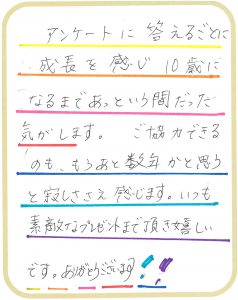 アンケートに答えるごとに
成長を感じ10歳に
なるまであっという間だった
気がします。 ご協力できる
のも、もうあと数年かと思う
と寂しささえ感じます。いつも
素敵なプレゼントまで頂き嬉しい
です。ありがとうございます!!